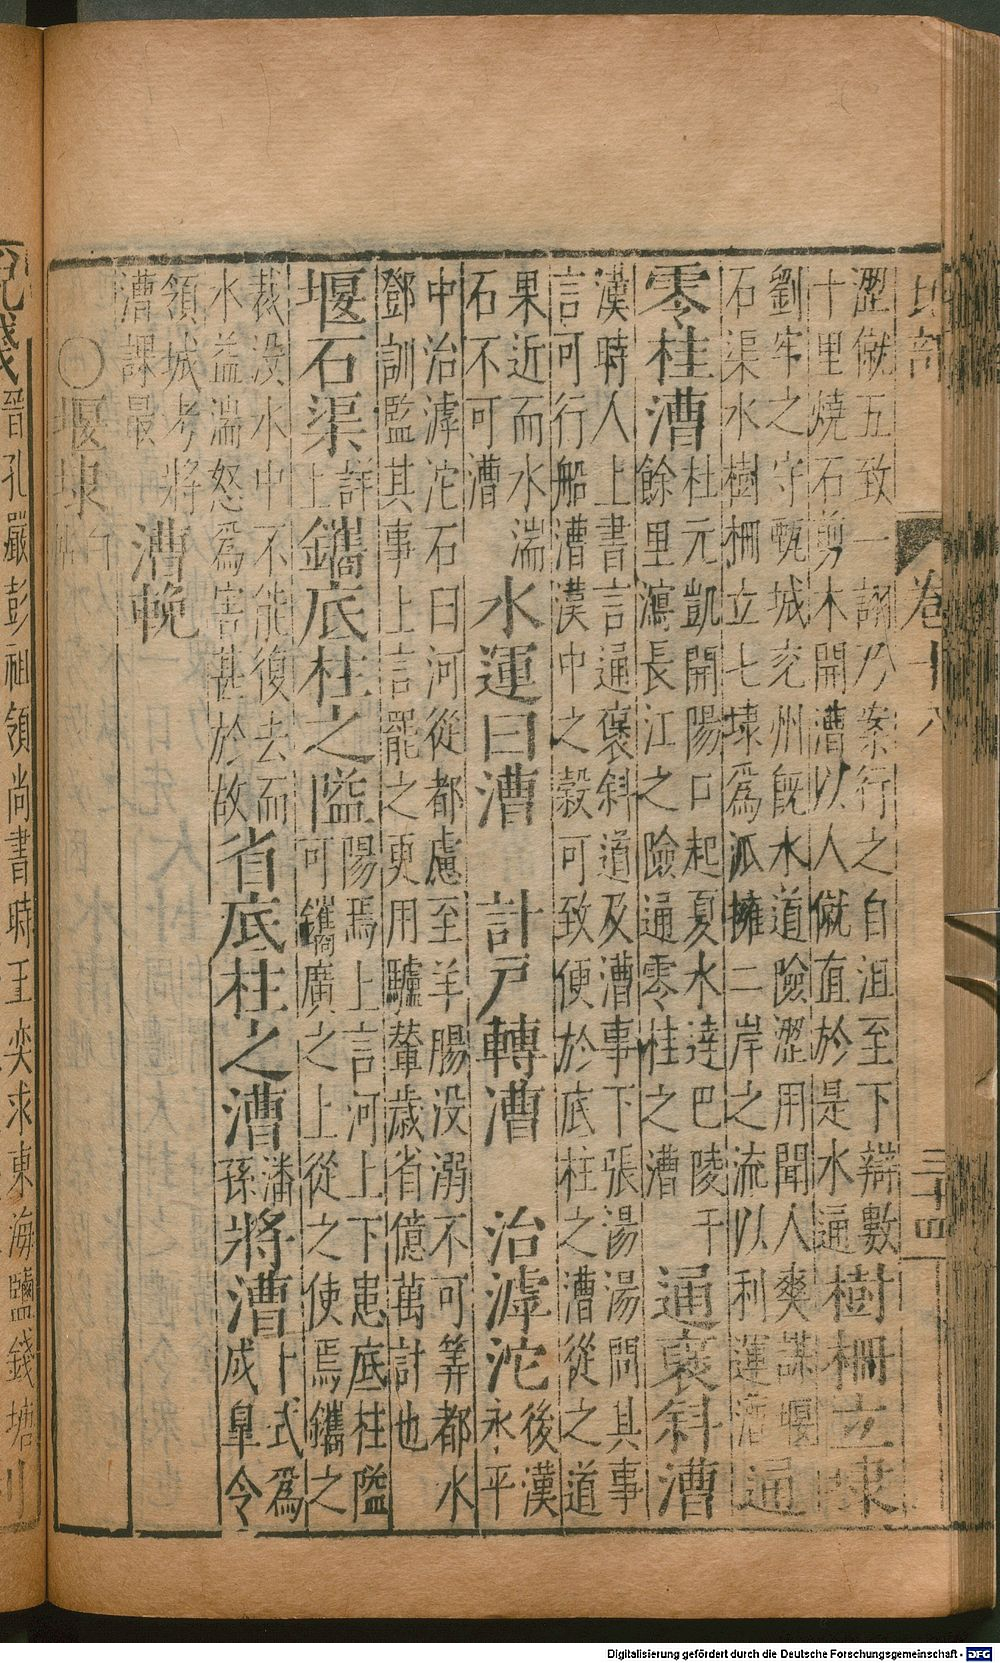 地部
卷十八
三十四
澀僦五致一謝乃案行之自沮至下辯數
十里燒石剪木開漕以人僦直於是水通
樹柵立埭
劉牢之守甄城兗州旣水道險澀用聞人奭謀堰
石渠水樹柵立七埭爲派擁二岸之流以利運漕
通
零桂漕
杜元凱開陽口起夏水達巴陵千
餘里瀉長江之險通零桂之漕
通襃斜漕
漢時人上書言通褒斜道及漕事下張湯湯問其事
言可行船漕漢中之穀可致便於底柱之漕從之道
果近而水湍
石不可漕
水運曰漕
計戸轉漕
治滹沱
後漢
永平
中治滹沱石臼河從都慮至羊腸没溺不可筭都水
鄧訓監其事上言罷之更用驢輦歲省億萬計也
堰石渠
詳
上
鑴底柱之隘
陽焉上言河上下患底柱隘
可鑴廣之上從之使焉鑴之
裁没水中不能復去而
水益湍怒爲害甚於故
省底柱之漕
潘
孫
將漕
卜式爲
成皐令
領城考將
漕課最
漕輓
〇堰埭
晉孔嚴彭祖領尚書時王奕求東海鹽錢塘
Digitalisierung gefördert durch die Deutsche Forschungsgemeinschaft - DFG